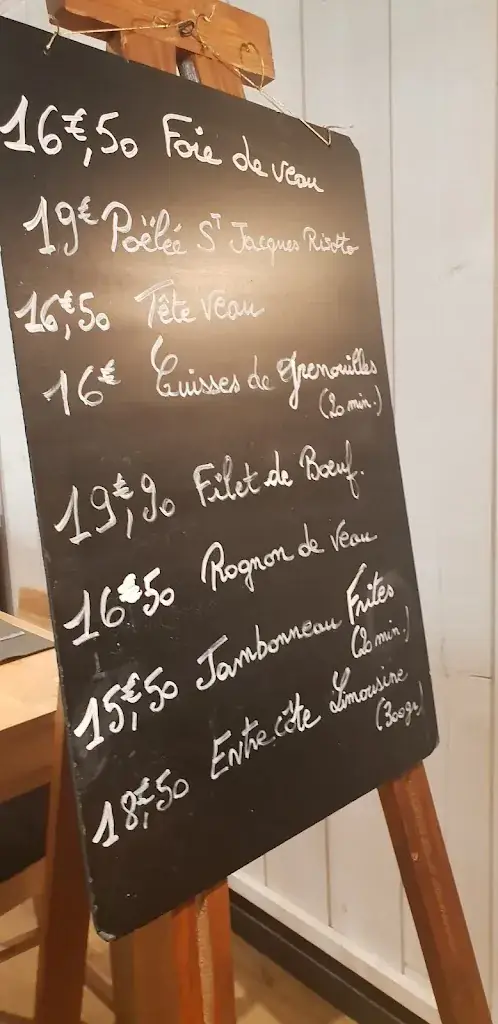 16€,50 Foie de veau
19€ Poëlée St Jacques Risotto
16€,50 Tête veau
16€ Cuisses de grenouilles
(20 min.)
19€,90 Filet de Boeuf.
16€50 Rognon de veau
15€,50 Jambonneau Frites
(20 min.)
18€,50 Entrecôte Limousine
(300gr)